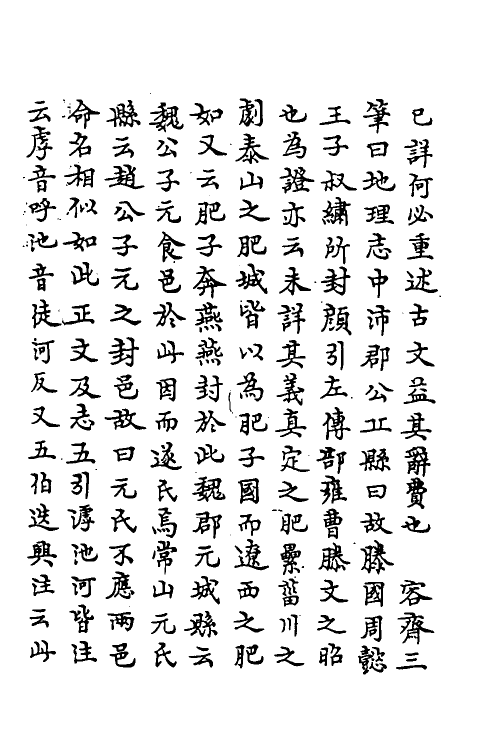 已詳何必重述古文益其辭費也　容齊三
筆曰地理志中沛郡公丘縣曰故滕國周懿
王子叔繡所封顔引左傳郜雍曹滕文之昭
也為證亦云未詳其義真定之肥纍菑川之
劇泰山之肥城皆以為肥子國而遼西之肥
如又云肥子奔燕燕封於此魏郡元城縣云
魏公子元食邑於此因而遂氏焉常山元氏
縣云趙公子元之封邑故曰元氏不應兩邑
命名相似如此正文及志五引滹池河皆注
云虖音呼池音徒河反又五伯迭興注云此